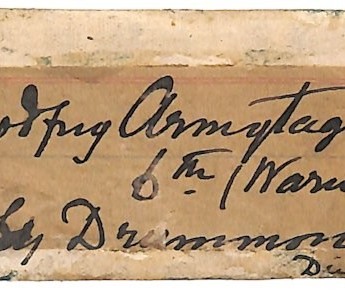 odfry Armytag
6th (Warw
by Drummon
Di